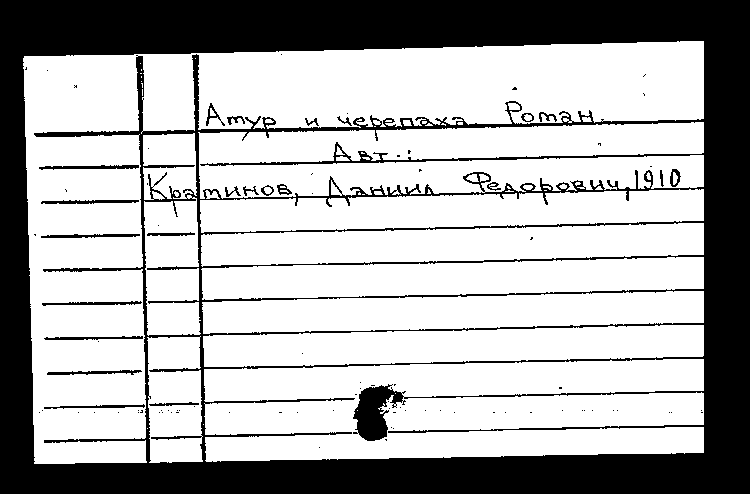 Атур и черепаха. Роман.
Авт.:
Кратинов, Даниил Федорович, 1910